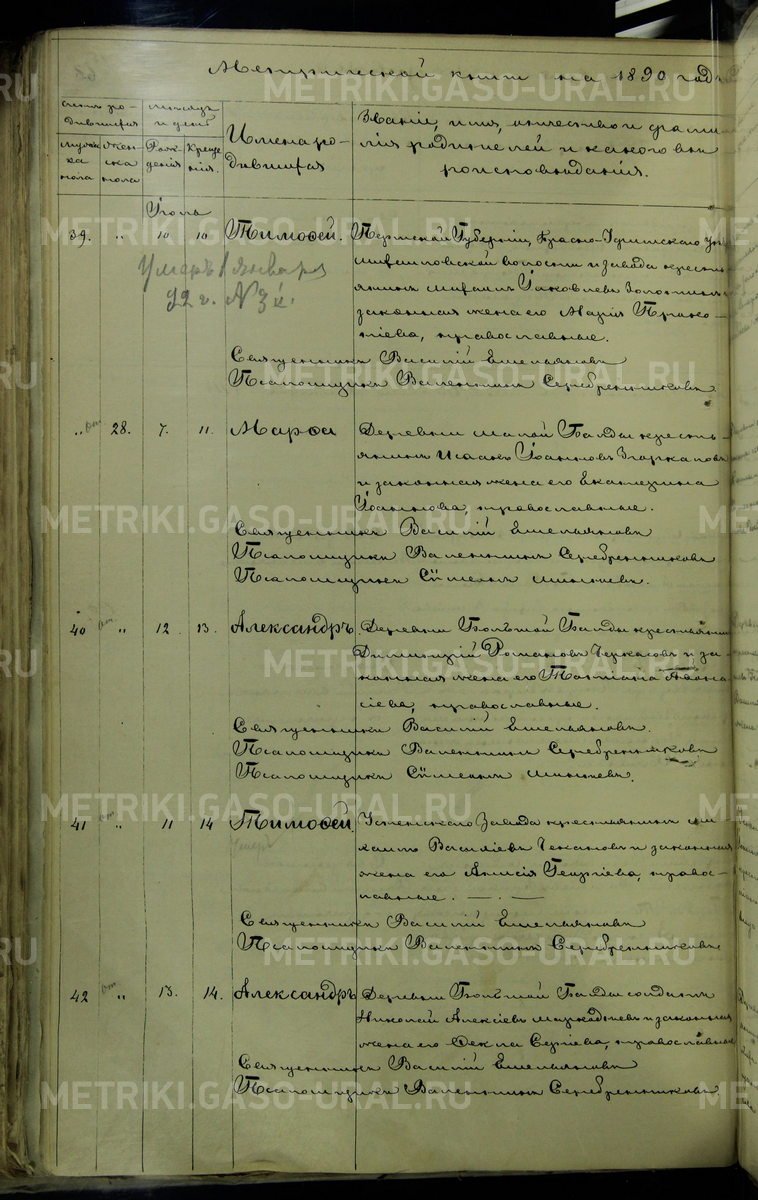 Метрической книги на 1890 годъ
Счетъ ро-
дившихся
Мѣсяцъ
и день
Имена ро-
дившихся
Званіе, имя, отчество и фами-
лія родителей и какого вѣ-
роисповѣданія.
муже-
ска
пола
Жен-
ска
пола
Рож-
денія
Креще-
нія.
Іюль
39. " 10 10 Тимоѳей. Пермской Губерніи, Красно-Уфимскаго уѣ
Михаиловской волости и завода кресть-
янинъ Михаилъ Іаковлевъ и
законная жена его Марія Проко-
піева, православные.
Умеръ 1 января
92 г. № 3й.
Священникъ Василій Емельяновъ
Псаломщикъ Валентинъ Серебренниковъ.
" 28. 7. 11. Марѳа Деревни Малой Талды кресть-
янинъ Исаакъ Іоанновъ
и законная жена его Екатерина
Іоаннова, православные.
Священникъ Василій Емельяновъ
Псаломщикъ Валентинъ Серебренниковъ
Псаломщикъ Сѷмеонъ
40 " 12 13. Александръ. Деревни Большой Талды крестьянинъ
Димитрій Романовъ Черкасовъ и за-
конная жена его Татіана Аѳана-
сіева, православные.
Священникъ Василій Емельяновъ.
Псаломщикъ Валентинъ Серебренниковъ
Псаломщикъ Сѷмеонъ
41 " 11 14 Тимоѳей. Успенскаго Завода крестьянинъ Ми-
хаилъ Василіевъ Чекановъ и законная
жена его Анисія Георгіева, правос-
лавные.
Священникъ Василій Емельяновъ
Псаломщикъ Валентинъ Серебренниковъ
42 " 13. 14. Александръ Деревни Большой Талды солдатъ
Николай Алексіевъ и законная
жена его Ѳекла Сергіева, православные
Священникъ Василій Емельяновъ
Псаломщикъ Валентинъ Серебренниковъ.
METRIKI.GASO-URAL.RU